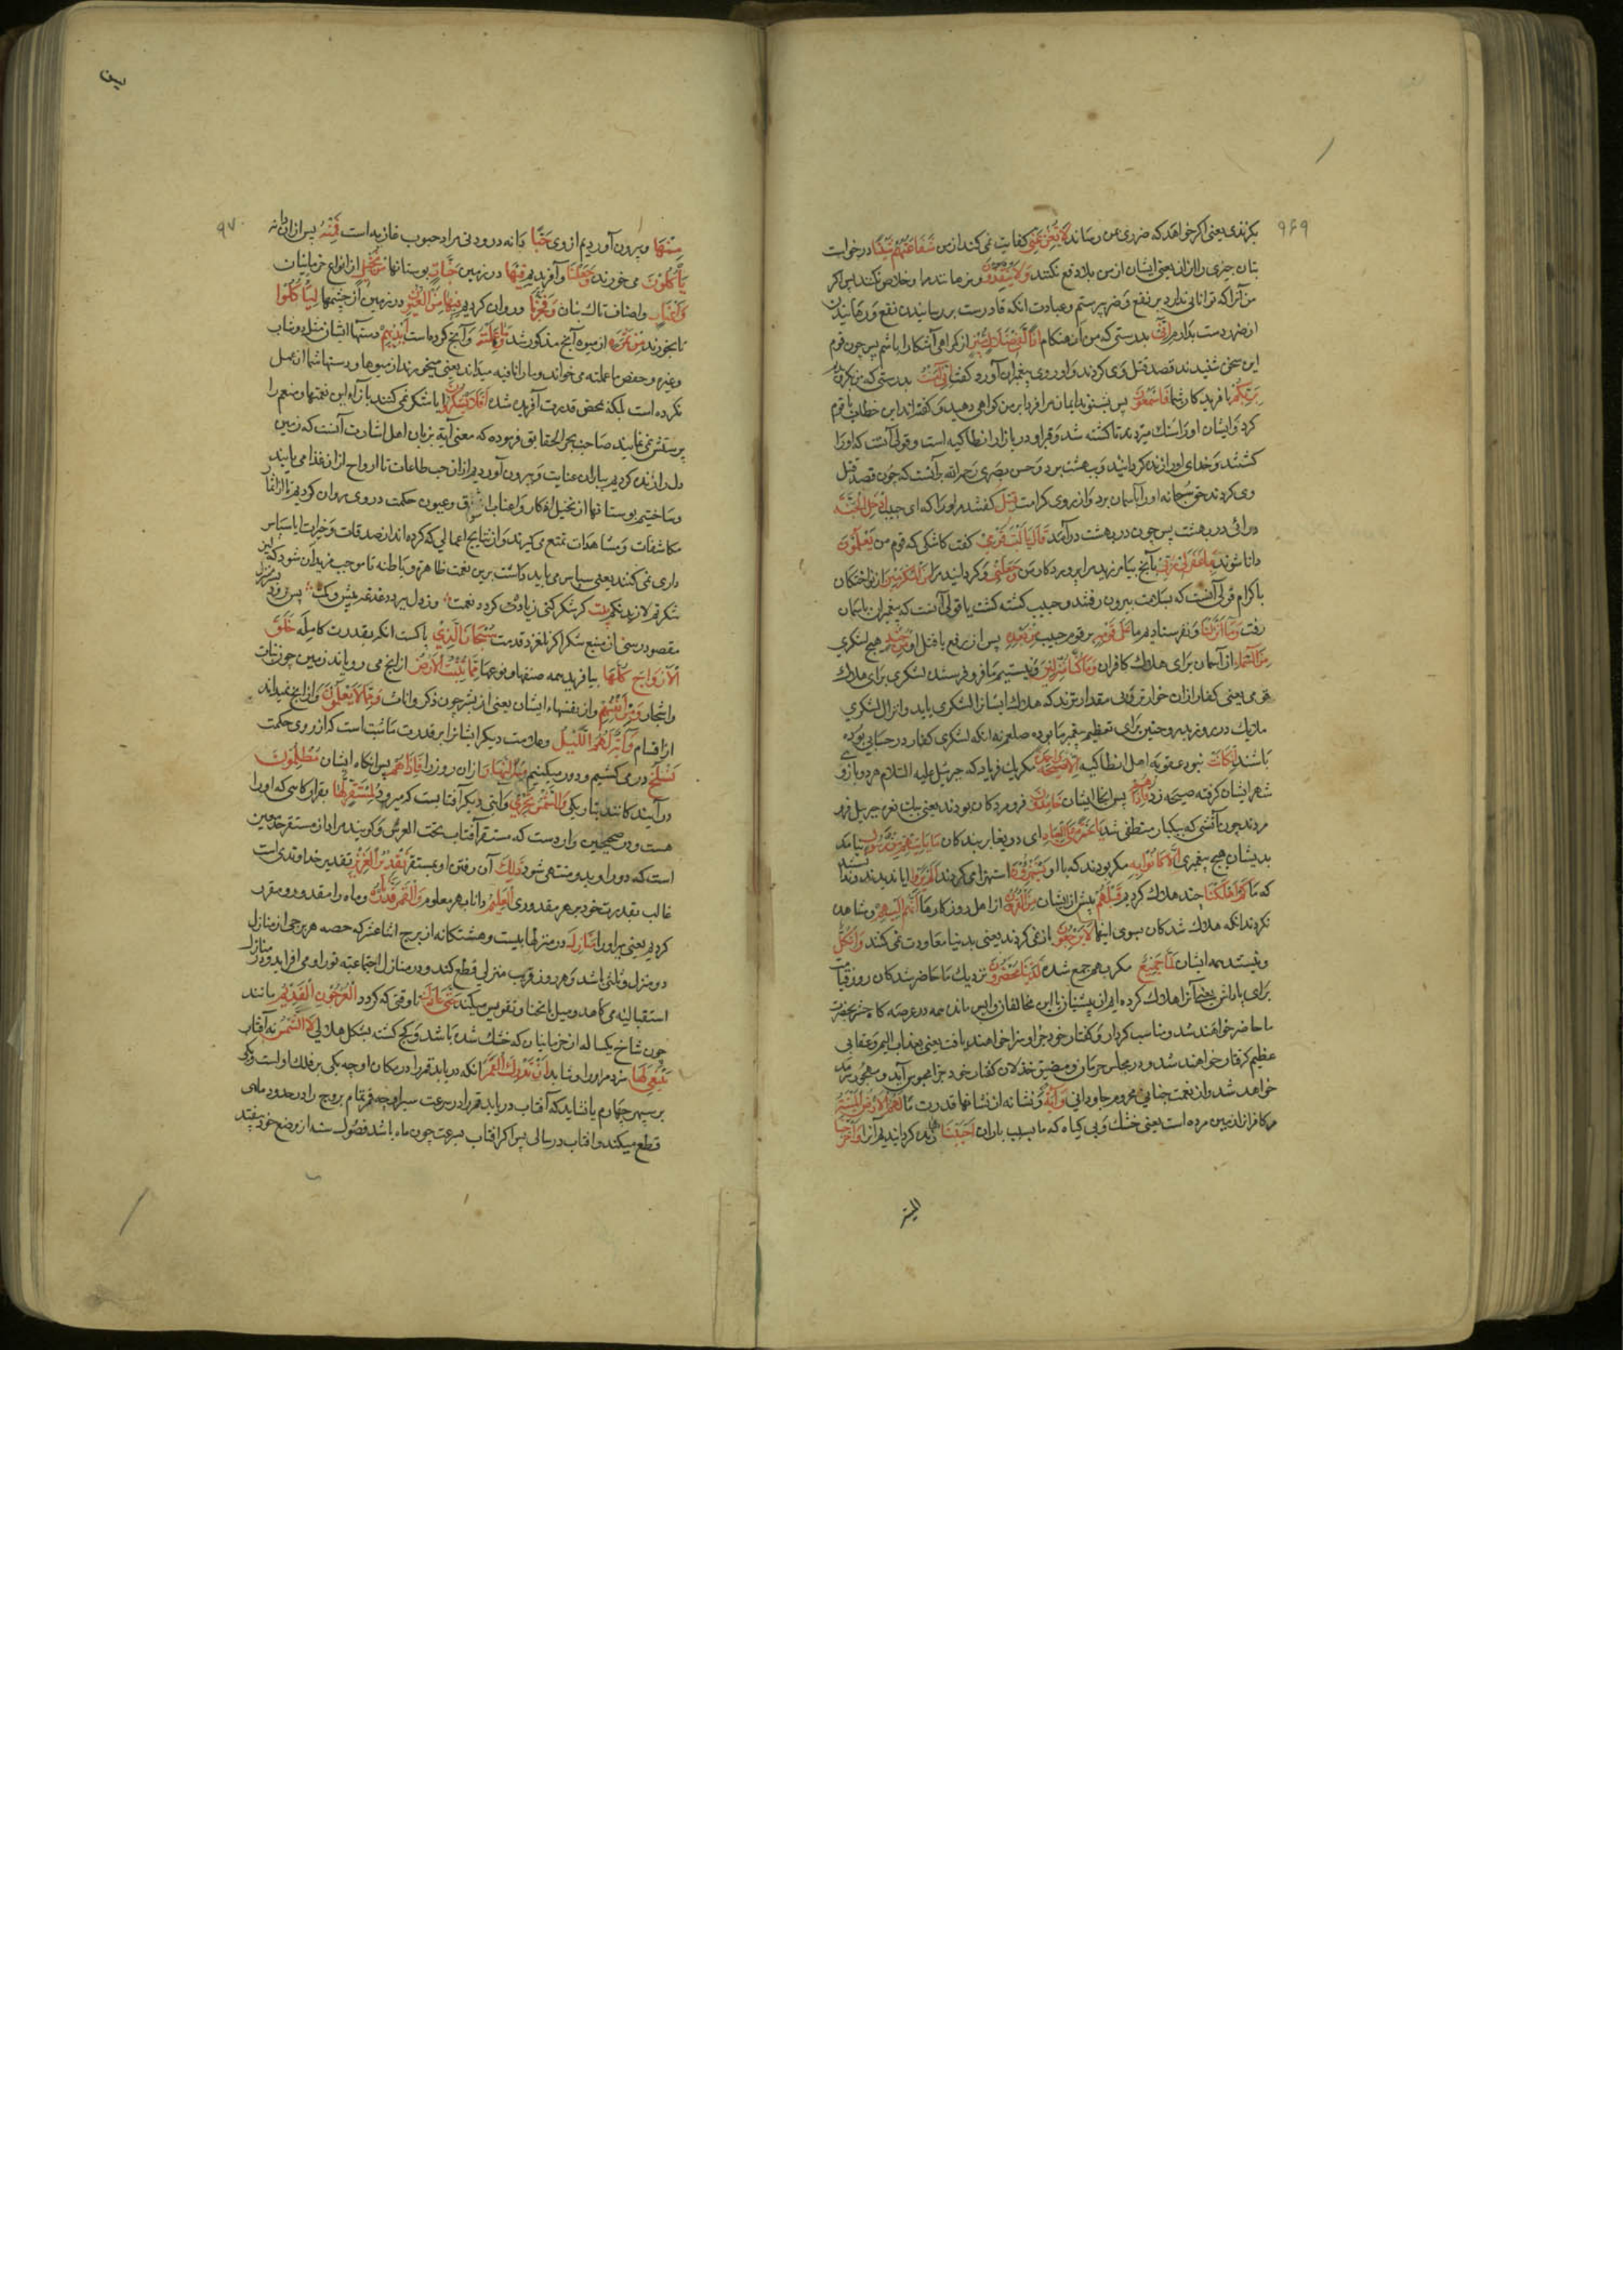 ۹۶۹
بگزندی یعنی اگر خواهد که ضرری بمن رساند لا تغن عنی کفایت نمی کند از من شفاعتهم شیئا درخواست
بتان چیزی را از یعنی ایشان از من بلا دفع نکنند ولا ینقذون و نرهانند مرا و خلاص نکنند پس اگر
من آنرا که توانایی ندارد بر نفع و ضر پرستم و عبادت آنکه قادرست بر رسانیدن نفع و رهانیدن
از ضر دست بدارم انی بدرستی که من آن هنگام اذا لفی ضلال مبین از گمراهی آشکارا باشم پس چون قوم
این سخن شنیدند قصد قتل وی کردند و او روی به پیغمبران آورد و گفت انی آمنت بدرستی که من بگرویدم
بربکم بآفریدگار شما فاسمعون پس بشنوید ایمان مرا فردا بر من گواهی دهید و گفته اند این خطاب با قوم
کرد و ایشان او را سنک میزدند تا کشته شد و قبر او در بازار انطاکیه است و قولی آنست که او را
کشتند و خدای او را زنده گردانید و ببهشت برد و حسن بصری رحمه الله بر آنست که چون قصد قتل
وی کردند حق سبحانه او را بآسمان برد و از روی کرامت قیل گفته شد مر او را که ای حبیب ادخل الجنة
درآی در بهشت پس چون در بهشت درآمد قال یا لیت قومی گفت کاشکی که قوم من یعلمون
دانا شوند بما غفر لی ربی بآنچه بیامرزید مرا پروردگار من وجعلنی و گردانید مرا من المکرمین از نواختگان
باکرام قولی آنست که بسلامت بیرون رفتند و حبیب کشته گشت یا قولی آنست که پیغمبران بآسمان
رفت وما انزلنا و نفرستادیم ما علی قومه بر قوم حبیب من بعده پس از رفع یا قتل او من جند هیچ لشکری
من السماء از آسمان برای هلاک کافران وما کنا منزلین و نیستیم ما فرو فرستنده لشکری برای هلاک
یعنی کفار از ان خوارتر و بی مقدارترند که هلاک ایشانرا لشکری باید و انزال لشکری
ملایک در روز بدر و حنین برای تعظیم پیغمبر ما بوده صلعم نه آنکه لشکری کفار در حسابی بوده
باشند ان کانت نبود عقوبة اهل انطاکیه الا صیحة واحدة مگر یک فریاد که جبرئیل علیه السلام هر دو بازوی
شهر ایشان گرفته صیحه زد فاذا هم پس آنجا ایشان خامدون فرو مردگان بودند یعنی بیک نعره جبرئیل فرو
مردند چون آتشی که بیکبار منطفی شد یا حسرة علی العباد ای دریغا بر بندگان ما یاتیهم من رسول نیامد
بدیشان هیچ پیغمبری الا کانوا به مگر بودند که با او یستهزؤن استهزا می کردند الم یروا آیا ندیدند و ندانستند
که ما کم اهلکنا چند هلاک کردیم قبلهم پیش از ایشان من القرون از اهل روزگارها انهم الیهم و مشاهده
نکردند آنکه هلاک شدگان بسوی اینها لا یرجعون باز نمی گردند یعنی بدنیا معاودت نمی کنند وان کل
و نیستند همه ایشان لما جمیع مگر بهم جمع شده لدینا محضرون نزدیک ما حاضر شدگان روز قیامت
برای پاداش یعنی آنرا هلاک کرده ایم از پیشینیان با این مخالفان واپس مانده همه در عرصه گاه حشر بحضرت
ما حاضر خواهند شد و مناسب کردار و گفتار خود جزا و سزا خواهند یافت یعنی بعذاب الیم و عقابی
عظیم گرفتار خواهند شد و در مجلس حرمان و مضیق خذلان کفار خود
خواهد شد و از نعمت جنانی محروم جاودانی وآیة و نشانه از نشانها قدرت ما لهم الارض المیتة
مر کافرانرا زمین مرده است یعنی خشک و بی گیاه که ما بسبب باران احییناها زنده گردانیدیم آنرا واخرجنا
المیتة
یس
۹۷۰
منها و بیرون آوردیم از وی حبا دانه درودنی مراد حبوب غاذیه است فمنه پس از ان دانه
یاکلون می خورند وجعلنا و آفریدیم فیها در زمین جنات بوستانها من نخیل از انواع خرما بنان
واعناب و اصناف تاک بنان وفجرنا و روان کردیم فیها من العیون در زمین از چشمها لیاکلوا
تا بخورند من ثمره از میوه آنچه مذکور شد وما عملته و آنچه کرده است ایدیهم دستهاء ایشان مثل دوشاب
و غیره و حفص ما عملته می خواند و ما را نافیه میداند یعنی میخورند از میوها و دستهاء شما آن عمل
نکرده است بلکه بمحض قدرت آفریده شده افلا یشکرون آیا شکر نمی کنند بازاء این نعمتها و منعم را
پرستش نمی نمایند صاحب بحر الحقایق فرموده که معنی آیة بزبان اهل اشارت آنست که زمین
دل را زنده کردیم بباران عنایت و بیرون آوردیم از ان حب طاعات تا ارواح از ان غذا می یابند
و ساختیم بوستانها از نخیل اذکار و اعناب اشواق و عیون حکمت در وی روان کردیم تا از اثمار
مکاشفات و مشاهدات تمتع می گیرند و از نتایج اعمالی که کرده اند از صدقات و خیرات آیا سپاس
داری نمی کنند یعنی سپاس می باید داشت برین نعمت ظاهره و باطنه تا موجب مزید آن شود که لئن
شکرتم لازیدنکم بیت گر شکر کنی زیاده گردد نعمت وز دل ببرد دغدغه بیش و کمت پس
مقصود رسی از منبع شکر اگر نلغزد قدمت سبحان الذی پاکست آنکه بقدرت کامله خلق
الازواج کلها بیافرید همه صنفها و نوعها مما تنبت الارض از آنچه می رویاند زمین چون نبات
و اشجار ومن انفسهم و از نفسهاء ایشان یعنی از بشر چون ذکر و اناث ومما لا یعلمون و از آنچه نمیدانند
از اقسام وآیة لهم اللیل و علامت دیگر ایشانرا بر قدرت ما شب است که از روی حکمت
نسلخ در می کشیم و دور میکنیم منه النهار از ان روز را فاذا هم پس آنگاه ایشان مظلمون
درآیندگانند بتاریکی والشمس تجری و آیتی دیگر آفتابست که میرود لمستقر لها بقرارگاهی که او را
هست و در صحیحین واردست که مستقر آفتاب تحت العرش و گویند مراد از مستقر حد معین
است که دور او بدو منتهی شود ذلک آن رفتن او بمستقر تقدیر العزیز تقدیر خداوندی است
غالب بقدرت خود بر هر مقدوری العلیم دانا بهر معلوم والقمر قدرناه و ماه را مقدر و مقرر
کردیم یعنی برای او را منازل در منزلها بیست و هشتگانه از بروج اثنا عشر که حصه هر برجی از منازل
دو منزل و ثلثی باشد و هر روز قریب منزلی قطع کند و در منازل اجتماعیه نور او می افزاید و در منازل
استقبالیه می کاهد و میل بانحنا و تقویس میکند حتی عاد تا وقتی که گردد کالعرجون القدیم مانند
چون شاخ یکساله از خرما بنان که خشک شده باشد و کج گشته بشکل هلالی لا الشمس نه آفتاب
ینبغی لها سزد مر او را و شاید ان تدرک القمر آنکه دریابد قمر را در مکان او چه یکی بر فلک اول است و یکی
بر سپهر چهارم یا نشاید که آفتاب دریابد قمر را در سرعت سیر او چه قمر تمام بروج را در حدود ماهی
قطع میکند و آفتاب در سالی پس اگر آفتاب بسرعت چون ماه باشد فصول سنه از وضع خود بیفتد